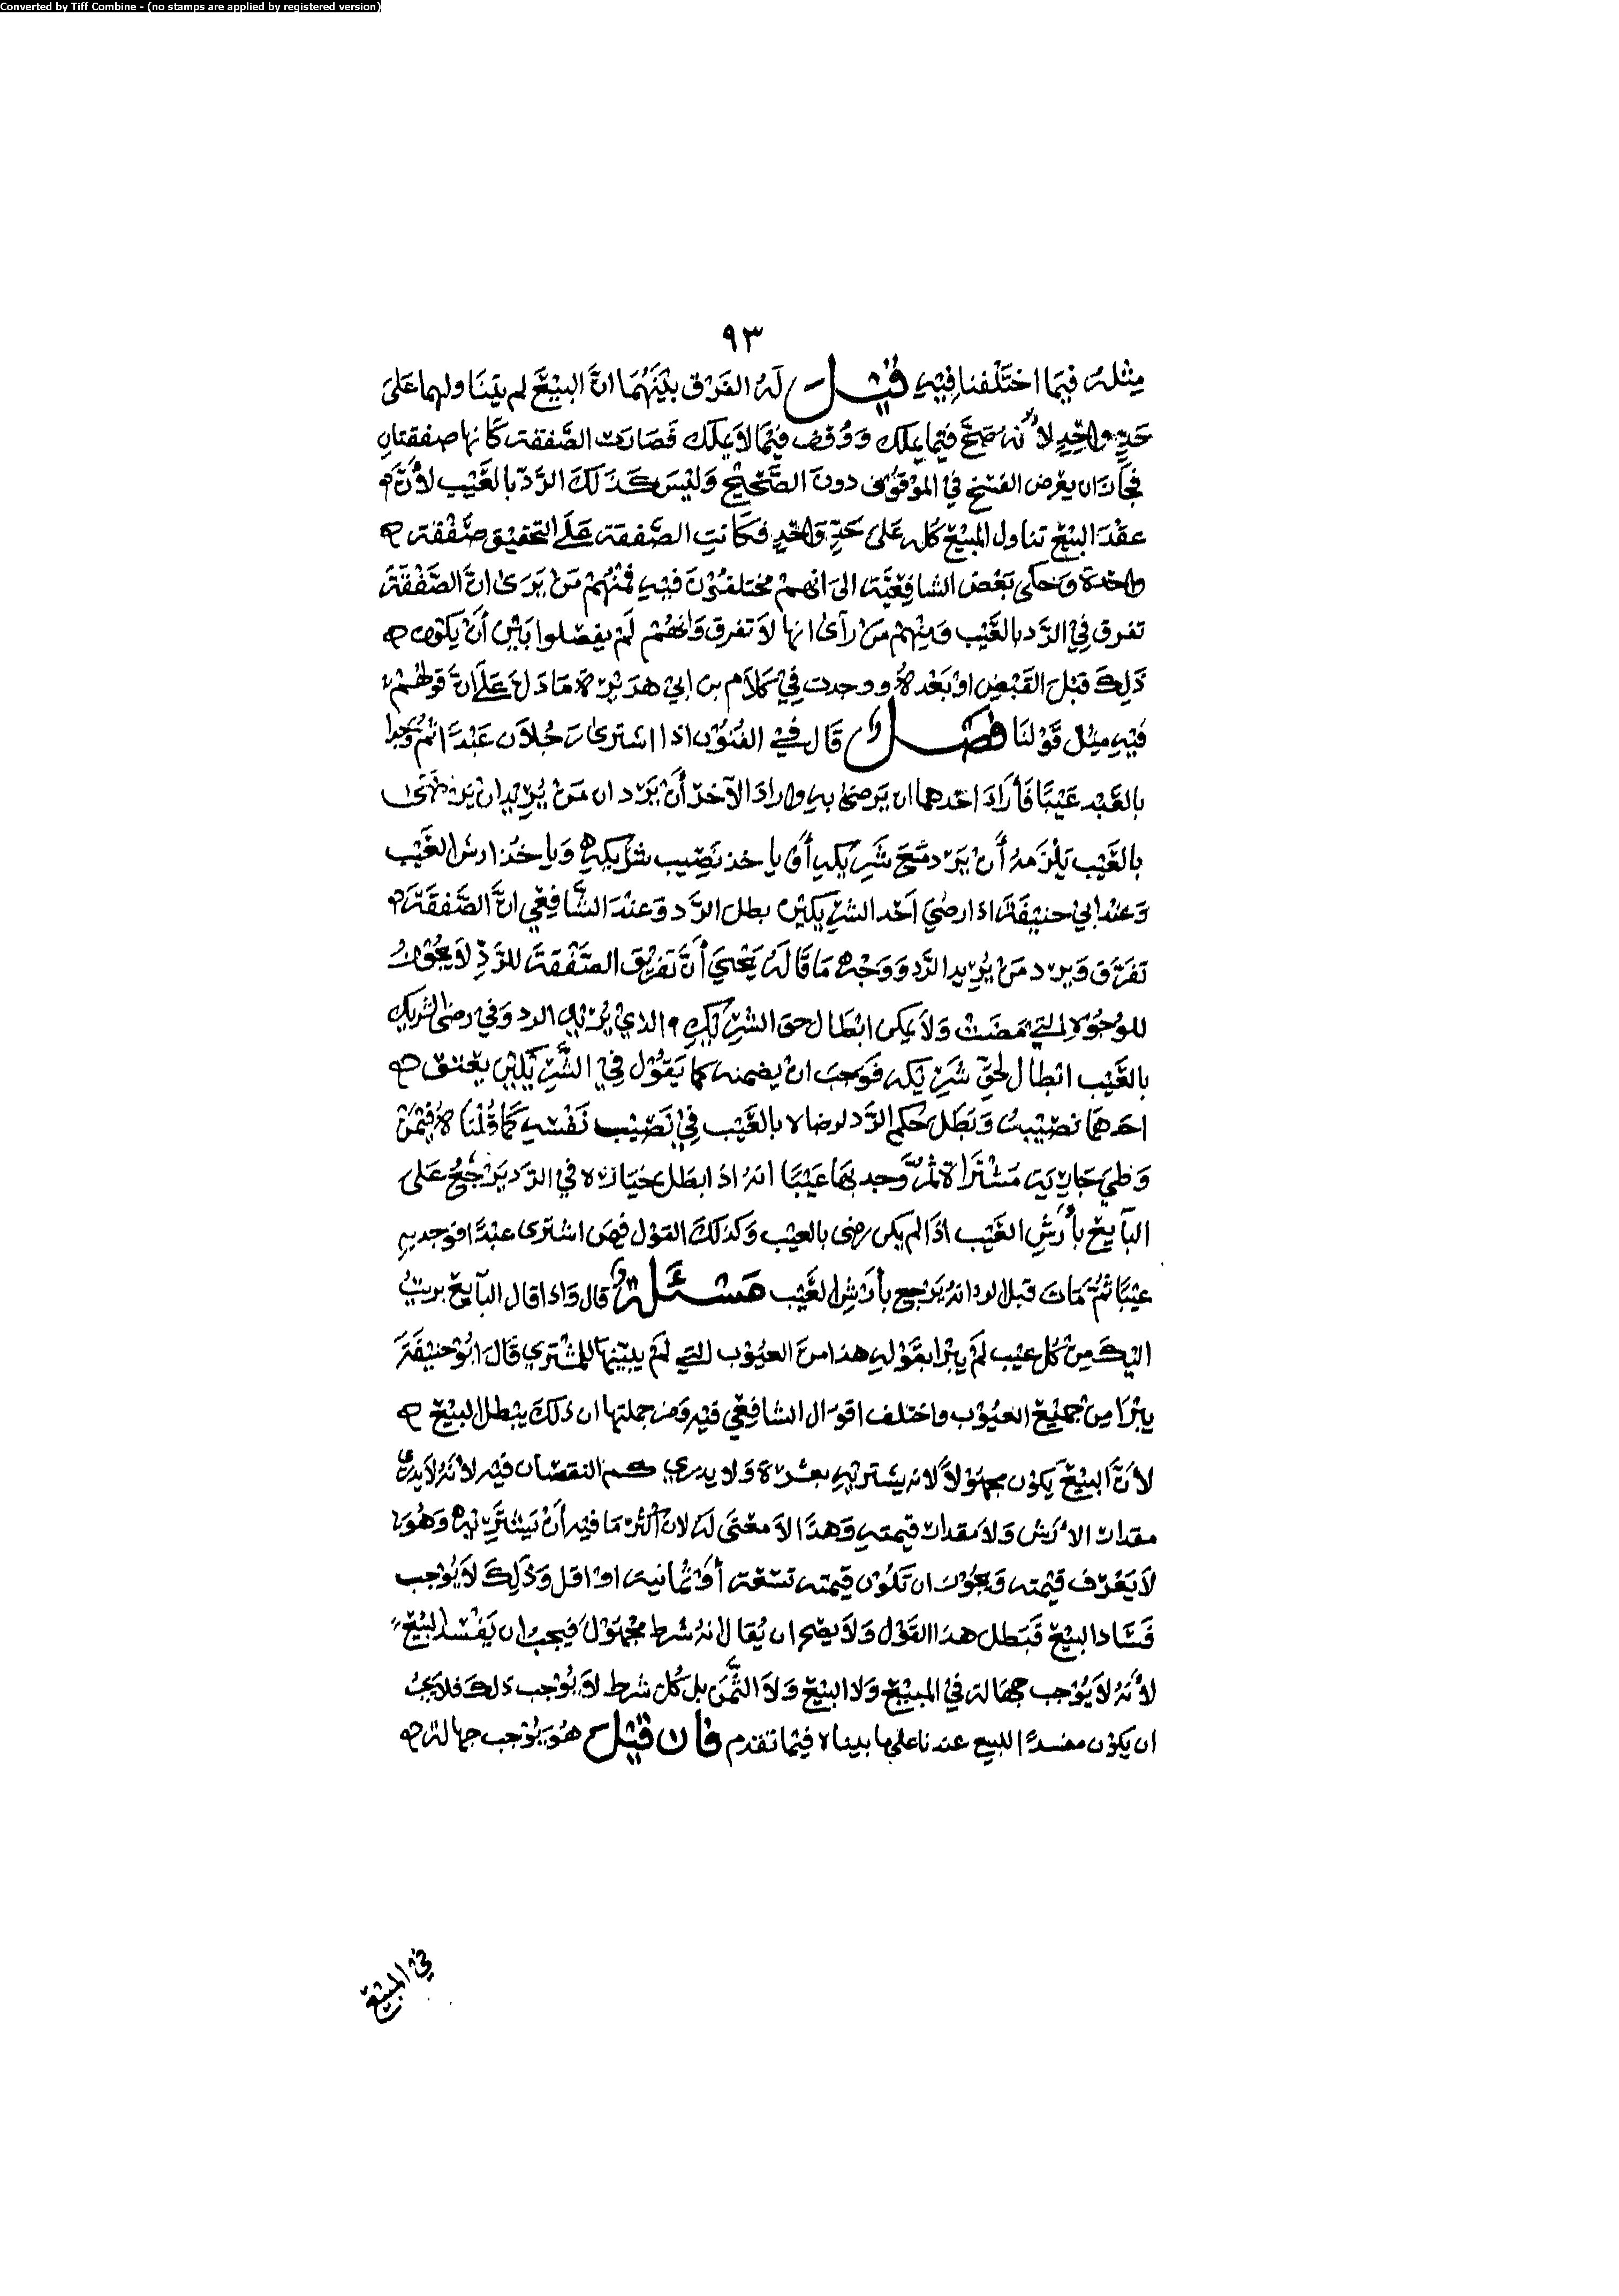 Converted by Tiff Combine - (no stamps are applied by registered version)
٩٣
مثله فيما اختلفنا فيه قيل له الفرق بينهما ان البيع لم يتناولهما على
حد واحد لأنه صح فيما يملك ووقف فيما لا يملك فصارت الصفقة كانها صفقتان
فجاز ان يعرض الفسخ في الموقوف دون الصحيح وليس كذلك الرد بالعيب لأن
عقد البيع تناول المبيع كله على حد واحد فكانت الصفقة على التحقيق صفقة
واحدة وحكى بعض الشافعية الى انهم مختلفون فيه فمنهم من يرى ان الصفقة
تفرق في الرد بالعيب ومنهم من رآى انها لا تفرق وانهم لم يفصلوا بين أن يكون
ذلك قبل القبض او بعده ووجدت في كلام بن ابي هريرة ما دل على ان قولهم
فيه مثل قولنا فصل قال في الفنون اذا اشترى رجلان عبدا ثم وجدا
بالعبد عيبا فأراد احدهما ان يرضى به واراد الآخر أن يرد ان من يريد ان يرضى
بالعيب يلزمه أن يرد مع شريكه أو ياخذ نصيب شريكه وياخذ ارش العيب
وعند ابي حنيفة اذا رضي احد الشريكين بطل الرد وعند الشافعي ان الصفقة
تفرق ويرد من يريد الرد ووجه ما قاله يحيى أن تفريق الصفقة للرد لا يجوز
للوجوه التي مضت ولا يمكن ابطال حق الشريك الذي يريد الرد وفي رضى الشريك
بالعيب ابطال لحق شريكه فوجب ان يضمنه كما يقول في الشريكين يعتق
احدهما نصيبه وبطل حكم الرد لرضاه بالعيب في نصيب نفسه كما قلناه فيمن
وطي جارية مشتراة ثم وجد بها عيبا انه اذا ابطل خياره في الرد يرجع على
البآيع بأرش العيب اذا لم يكن رضى بالعيب وكذلك القول فيمن اشترى عبدا فوجد به
عيبا ثم مات قبل الرد انه يرجع بأرش العيب مسئلة قال واذا قال البآيع بريت
اليك من كل عيب لم يبرا بقوله هذا من العيوب التي لم يبينها للمشتري قال ابو حنيفة
يبرا من جميع العيوب واختلف اقوال الشافعي فيه ومن جملتها ان ذلك يبطل البيع
لأن البيع يكون مجهولا لانه يشتريه بعشرة ولا يدري كم النقصان فيه لأنه لا يدري
مقدار الأرش ولا مقدار قيمته وهذا لا معنى له لان أكثر ما فيه أن يشتريه وهو
لا يعرف قيمته ويجوز ان تكون قيمته تسعة أو ثمانية او اقل وذلك لا يوجب
فساد البيع فبطل هذا القول ولا يصح ان يقال انه شرط مجهول فيجب ان يفسد البيع
لأنه لا يوجب جهالة في المبيع ولا البيع ولا الثمن بل كل شرط لا يوجب ذلك فلا يجب
ان يكون مفسدا للبيع عندنا على ما بيناه فيما تقدم فان قيل هو يوجب جهالة
في المبيع